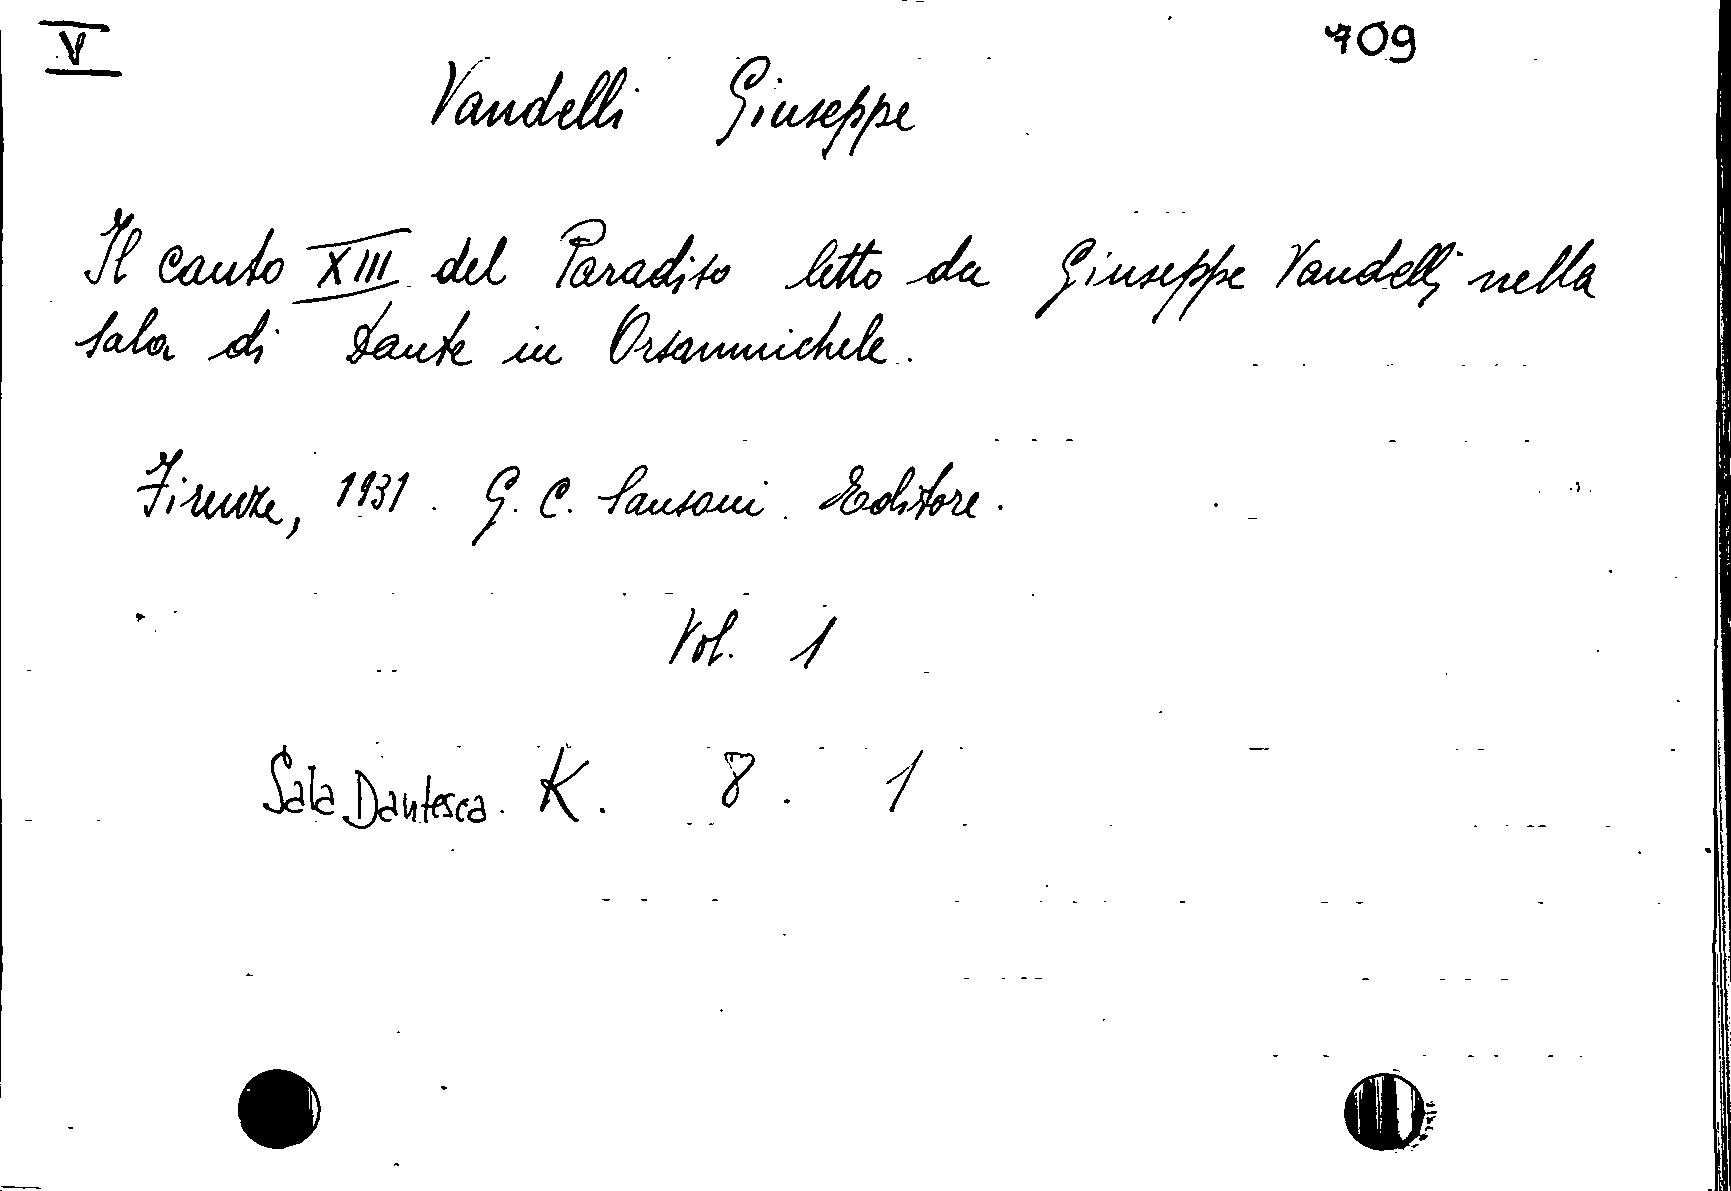 V
709
Vandelli Giuseppe
Il canto XIII del Paradiso letto da Giuseppe Vandelli nella
sala di Dante in Orsanmichele.
Firenze, 1931. G. C. Sansoni. Editore.
Vol. 1
Sala Dantesca. K. 8. 1